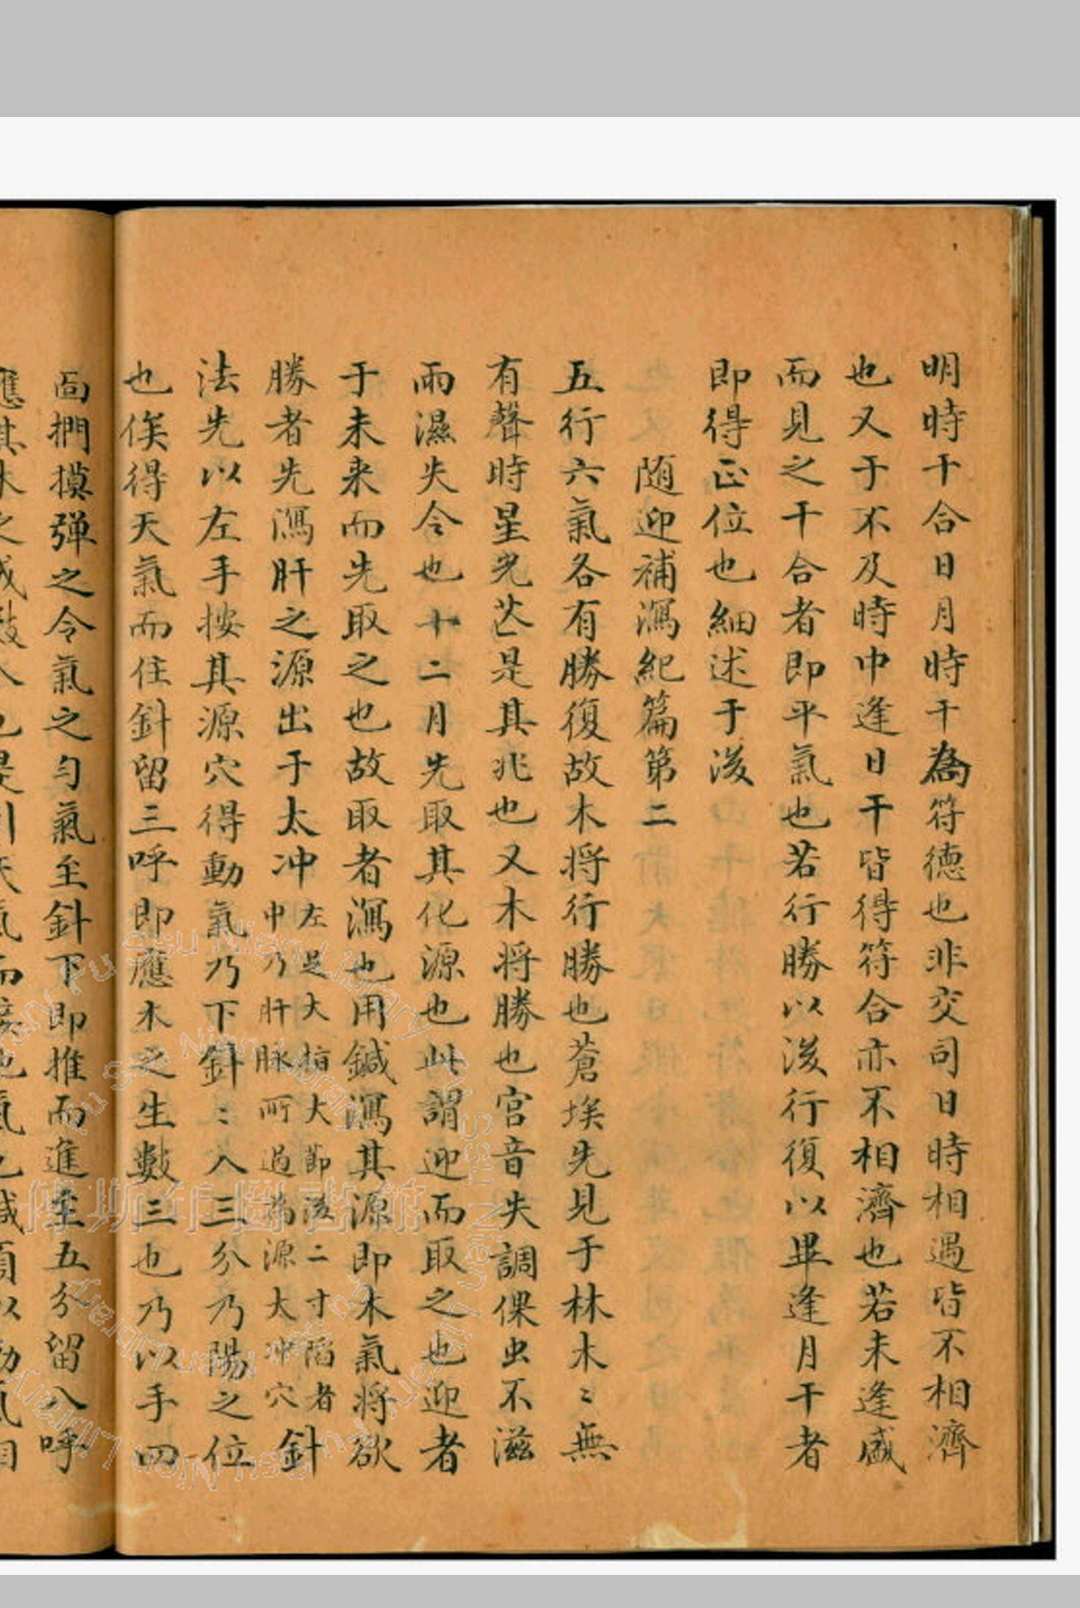 明時干合日月時干為符德也非交司日時相遇皆不相濟
也又于不及時中逢日干皆得符合亦不相濟也若未逢感
而見之干合者即平氣也若行勝以後行復以畢逢月干者
即得正位也細述于後
随迎補瀉紀篇第二
五行六氣各有勝復故木将行勝也蒼埃先見于林木〻無
有聲時星光芒是其兆也又木将勝也宮音失調倮虫不滋
雨濕失令也十二月先取其化源也此謂迎而取之也迎者
于未来而先取之也故取者瀉也用鍼瀉其源即木氣将欲
勝者先瀉肝之源出于太冲左足大指大節後二寸陷者中乃肝脉所過為源大冲穴針
法先以左手按其源穴得動氣乃下針〻入三分乃陽之位
也俟得天氣而住針留三呼即應木之生數三也乃以手四
面捫摸弹之令氣之匀氣至針下即推而進至五分留八呼